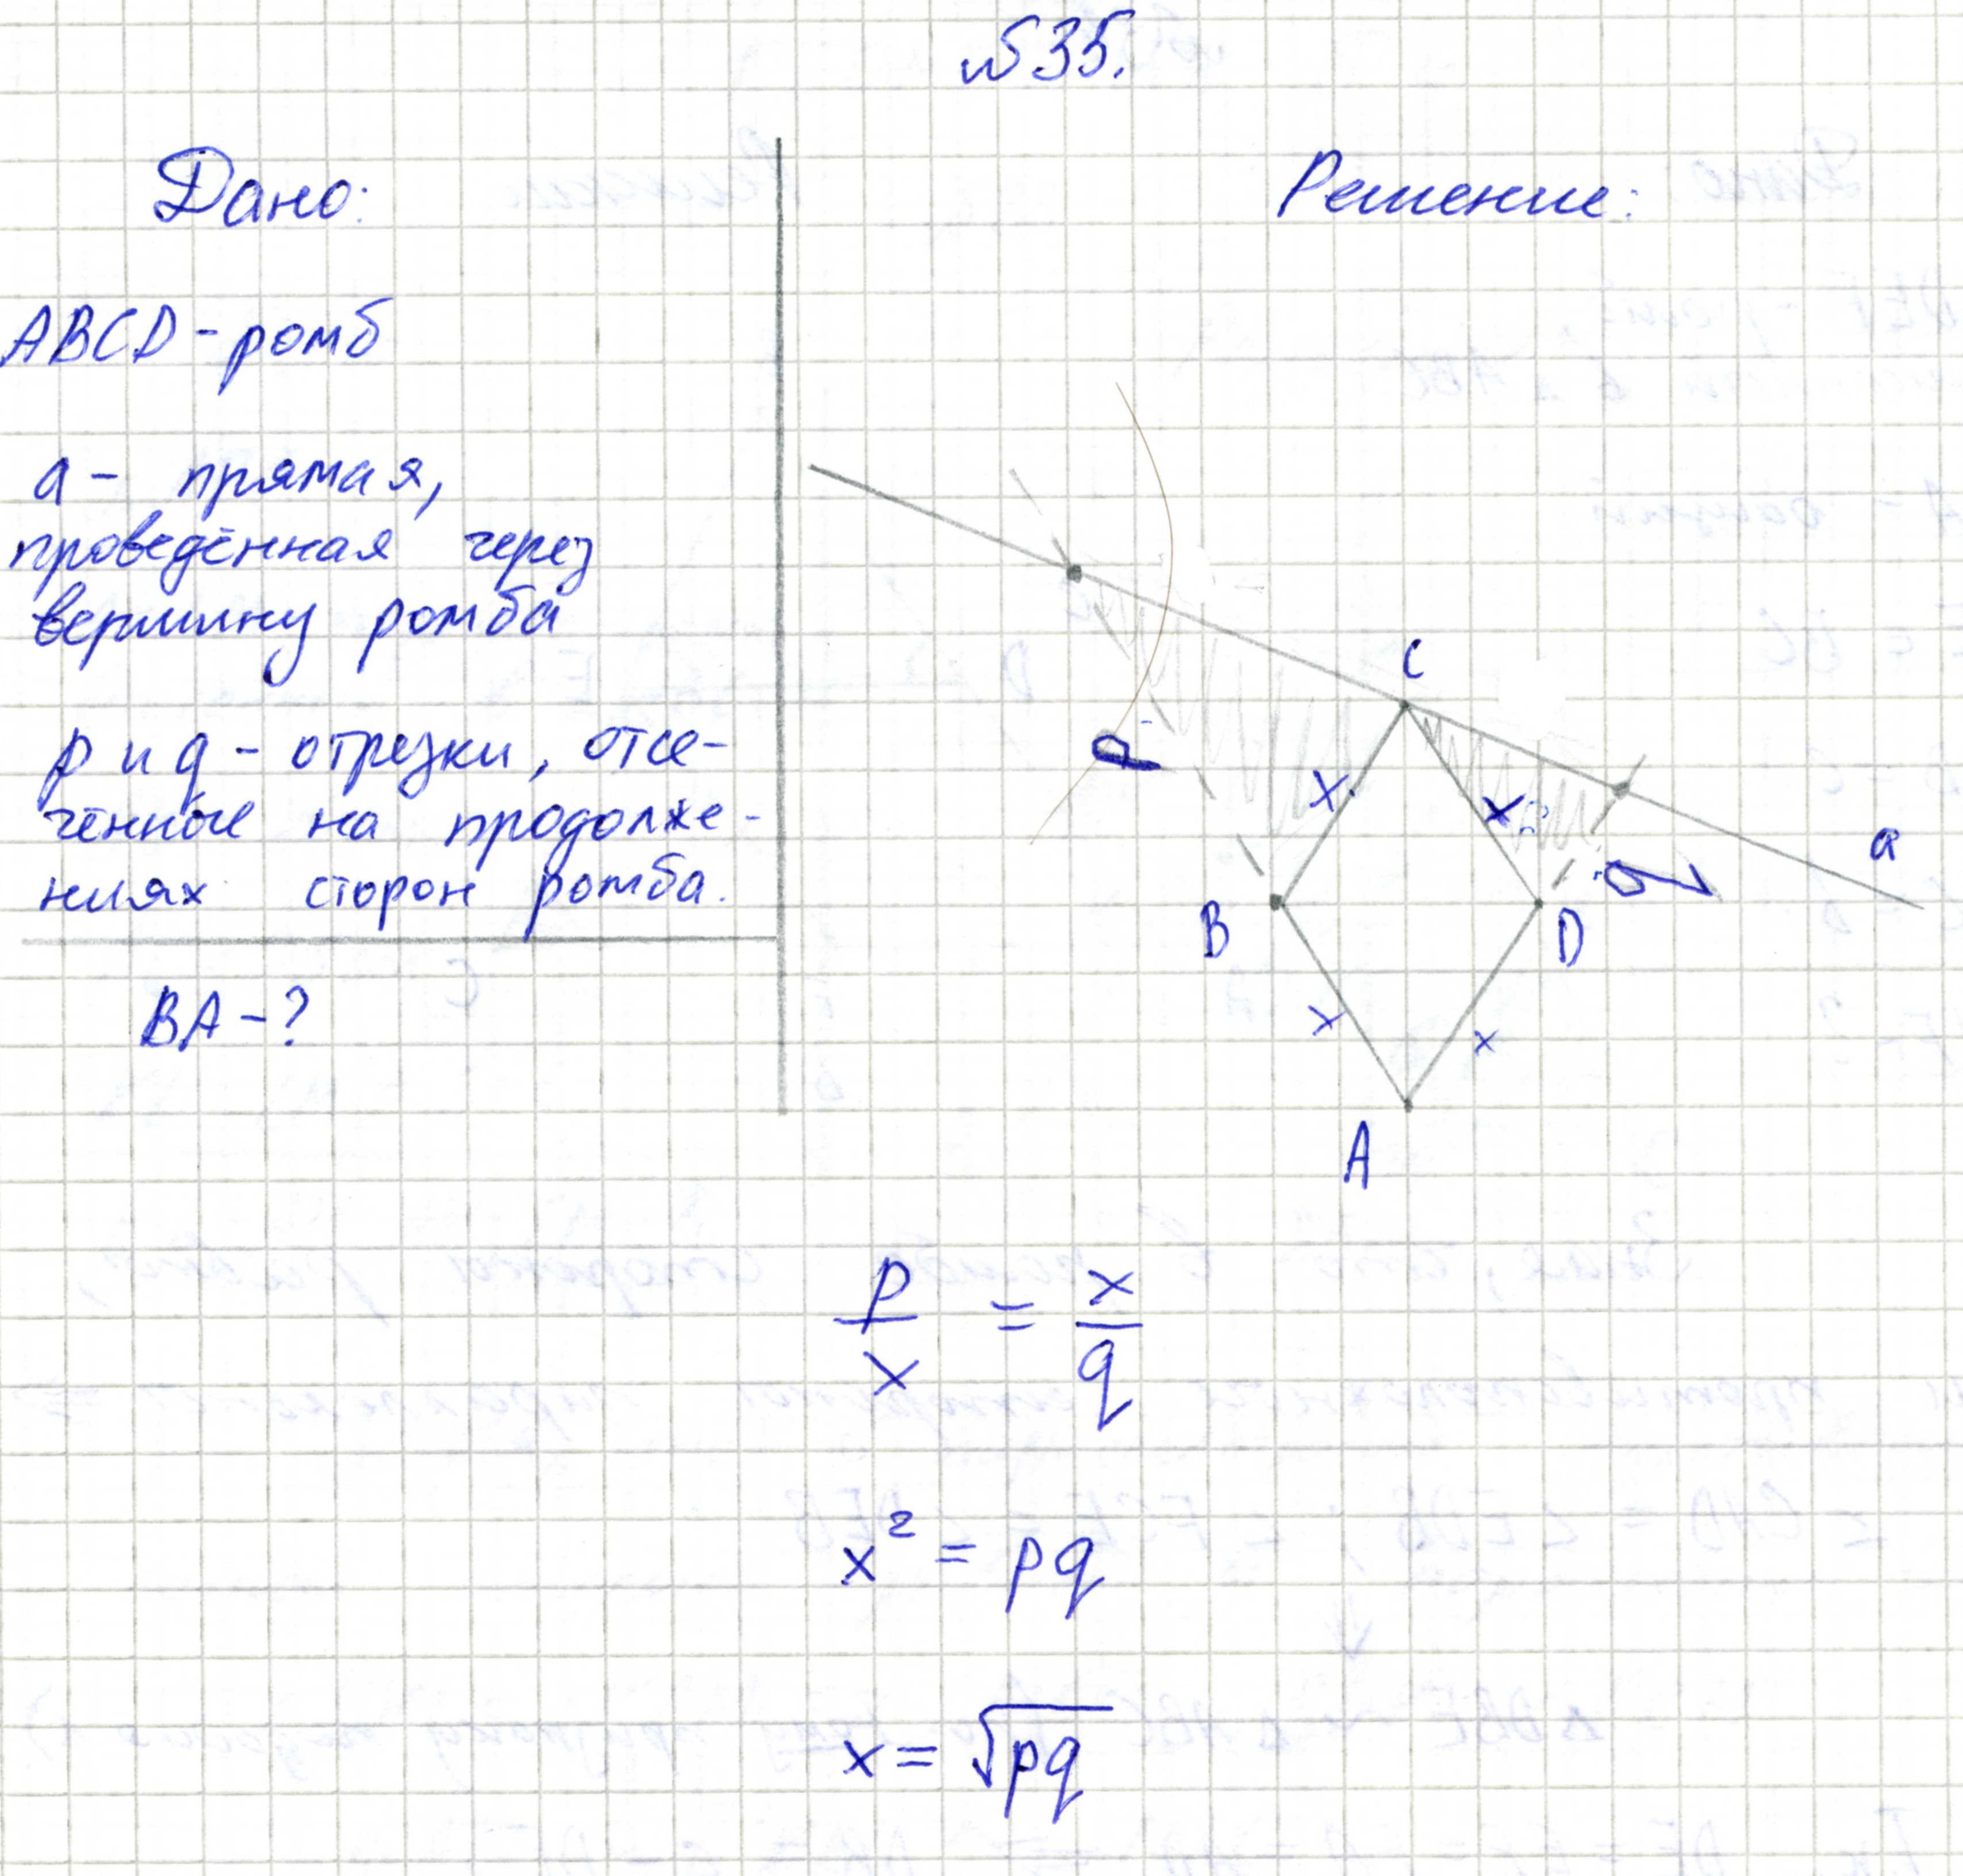 №535.
Дано:
ABCD - ромб
a - прямая,
проведённая через
вершину ромба
p и q - отрезки, отсе-
чённые на продолже-
ниях сторон ромба.
BA - ?
Решение:
C
p
x
x
a
q
B
D
x
x
A
p/x = x/q
x² = pq
x = √pq